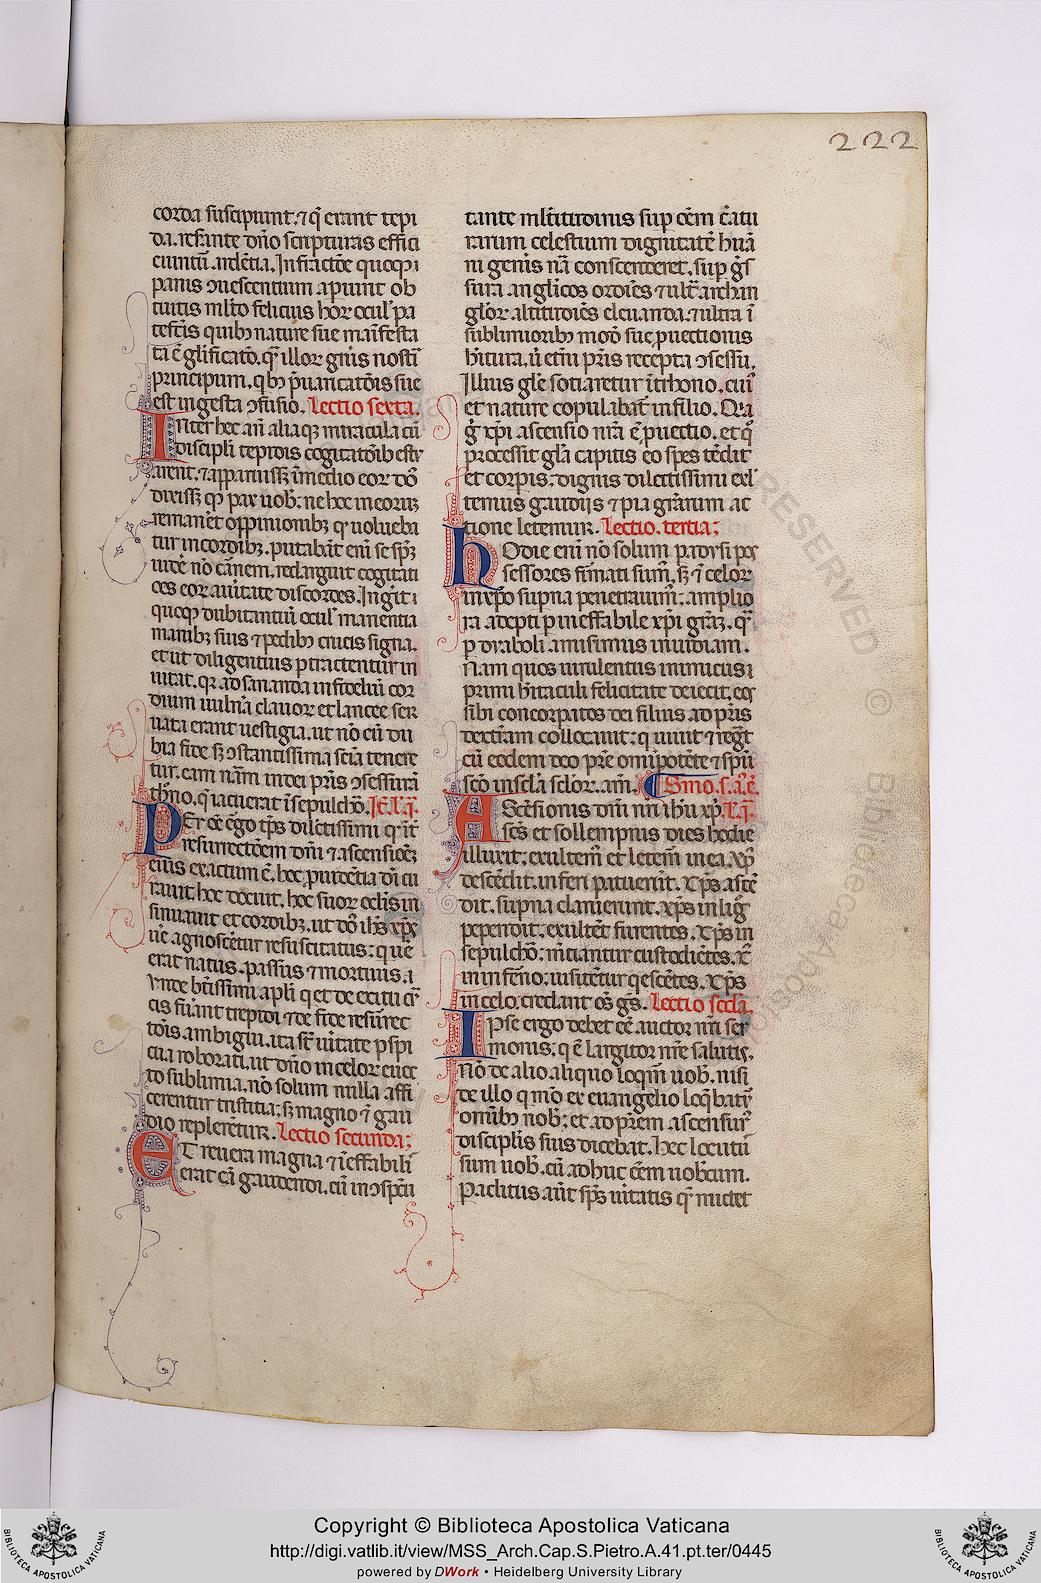 222
corda suscipiunt. ⁊ q̄ erant tepi
da. resante dn̄o scripturas effici
cuntũ. ardētia. In fractōe quoq; i
panis ɔuescentium aperiunt ob
tuitis ml̄to felicius hor ocul' pa
tefc̄is quib; nature sue māifesta
ta ē gl̄ificatō. q̄ illor gn̄is nostri
principum. qb; p̄uaricatōis sue
est ingesta ɔfusio. Lectio sexta.
Inter hec aūt alia q; miracula cũ
discipli trepidis cogitatōib estu
arent. ⁊ apparuiss; ī medio eor dn̄s
dixiss; q; pax uob; ne hec in eorum
remanēt oppinionib; q̄ uolueba
tur in cordib;. putabāt enī se sp̄m
uidē nō carnem. redarguit cogitati
ōes eor a ūitate discordes. Ingīt
quoq; dubitantiū ocul' manentia
manib; suis ⁊ pedib; crucis signa.
et ut diligentius ptractentur in
uitat. q̄ ad sananda infideliū cor
dium uuln̄a clauor et lancee ser
uata erant uestigia. ut nō cū du
bia fide s; ɔstantissima scīa tenere
tur. eam nām in dei pr̄is ɔsessurā
thr̄no. q̄ iacuerat ī sepulchro.
Per oē ergo tp̄s dilectissimi q̄ īt
resurrectōem dn̄i ⁊ ascensiōem
eius exactum ē. hec puidētia dī cu
rauit. hec docuit. hec suor oculis in
sinuauit et cordib;. ut dn̄s ih̄s xp̄s
ūe agnoscētur resuscitatus: qui ue
erat natus. passus ⁊ mortuus.
Vnde bt̄issimi apl̄i q et de exitu cru
cis fūant trepidi ⁊ de fide resurrec
tōis. ambigui. ita st̄ ūitate pspi
cua roborati. ut dn̄o in celor eunte
to sublimia. nō solum nulla affi
cerentur tristitia; s; magno ⁊ gau
dio replerētur. Lectio secunda;
Et reuera magna ⁊ īeffabili
erat cā gaudendi. cū in ɔspc̄u
tante ml̄titudinis sup oēm c̄atu
rarum celestium dignitatē huā
ni generis nā conscenderet. sup ḡs
sura anglicos ordīes ⁊ ult̄ archan
glor altitudīes eleuanda. ⁊ ultra ī
sublimiorib; modū sue puectionis
hitura. n̄ etn̄i pr̄is recepta ɔsessu.
Illius gl̄e sotiaretur ī throno. cui'
et nature copulabāt in filio. Quia
ḡ xp̄i ascensio nr̄a ē puectio. et qō
processit gl̄a capitis eo spes tēdit
et corpis: dignis dilectissimi exl
temus gaudijs ⁊ pia gr̄arum ac
tione letemur. Lectio. tertia;
Hodie enī nō solum paradysi pos
sessores firmati sum̄. s; ⁊ celor
in xp̄o supna penetrauim̄: amplio
ra adepti p ineffabile xp̄i gr̄am. q̄
p dyaboli amisimus inuidiam.
Nam quos uirulentus inimicus i
primi hītaculi felicitate deiecit. eos
sibi concorpatos dei filius ad pr̄is
dexteram collocauit: q uiuit ⁊ regt̄
cū eodem deo pr̄e omīpotēte ⁊ spū
scō in scl̄a sclor. am̄. Smo.
Ascensionis dn̄i nr̄i ih̄u xp̄i.
scs et sollempnis dies hodie
illuxit: exultem̄ et letem̄ in ea. xp̄s
descēdit. inferi patuerūt. xp̄s ascē
dit. supna claruerunt. xp̄s in lig̊
pependit: exultēt furentes. xp̄s in
sepulchro: mētiantur custodiētes. xp̄
in īferno: uisitētur qescētes. xp̄s
in celo: credant oēs gn̄s. Lectio secda.
Ipse ergo debet eē auctor nr̄i ser
monis: q ē largitor nr̄e salutis.
Nō de alio aliquo loqm̄ uob. nisi
de illo q mō ex euangelio loq̄bat
omīb; nob; et ad pr̄em ascensur'
disciplis suis dicebat. Hec locutus
sum uob. cū adhuc eēm uobcum.
Paclitus aūt sp̄s ūitatis q̄ mittet
RESERVED © Biblioteca Apostolica
Copyright © Biblioteca Apostolica Vaticana
http://digi.vatlib.it/view/MSS_Arch.Cap.S.Pietro.A.41.pt.ter/0445
powered by DWork • Heidelberg University Library
BIBLIOTECA APOSTOLICA VATICANA
BIBLIOTECA APOSTOLICA VATICANA